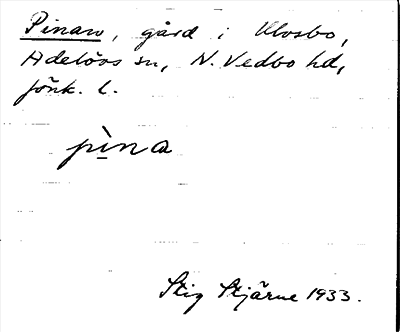 Pinan, gård i Ulvsbo,
Adelövs sn, N. Vedbo hd,
Jönk. l.
pìna
Stig Stjärne 1933.